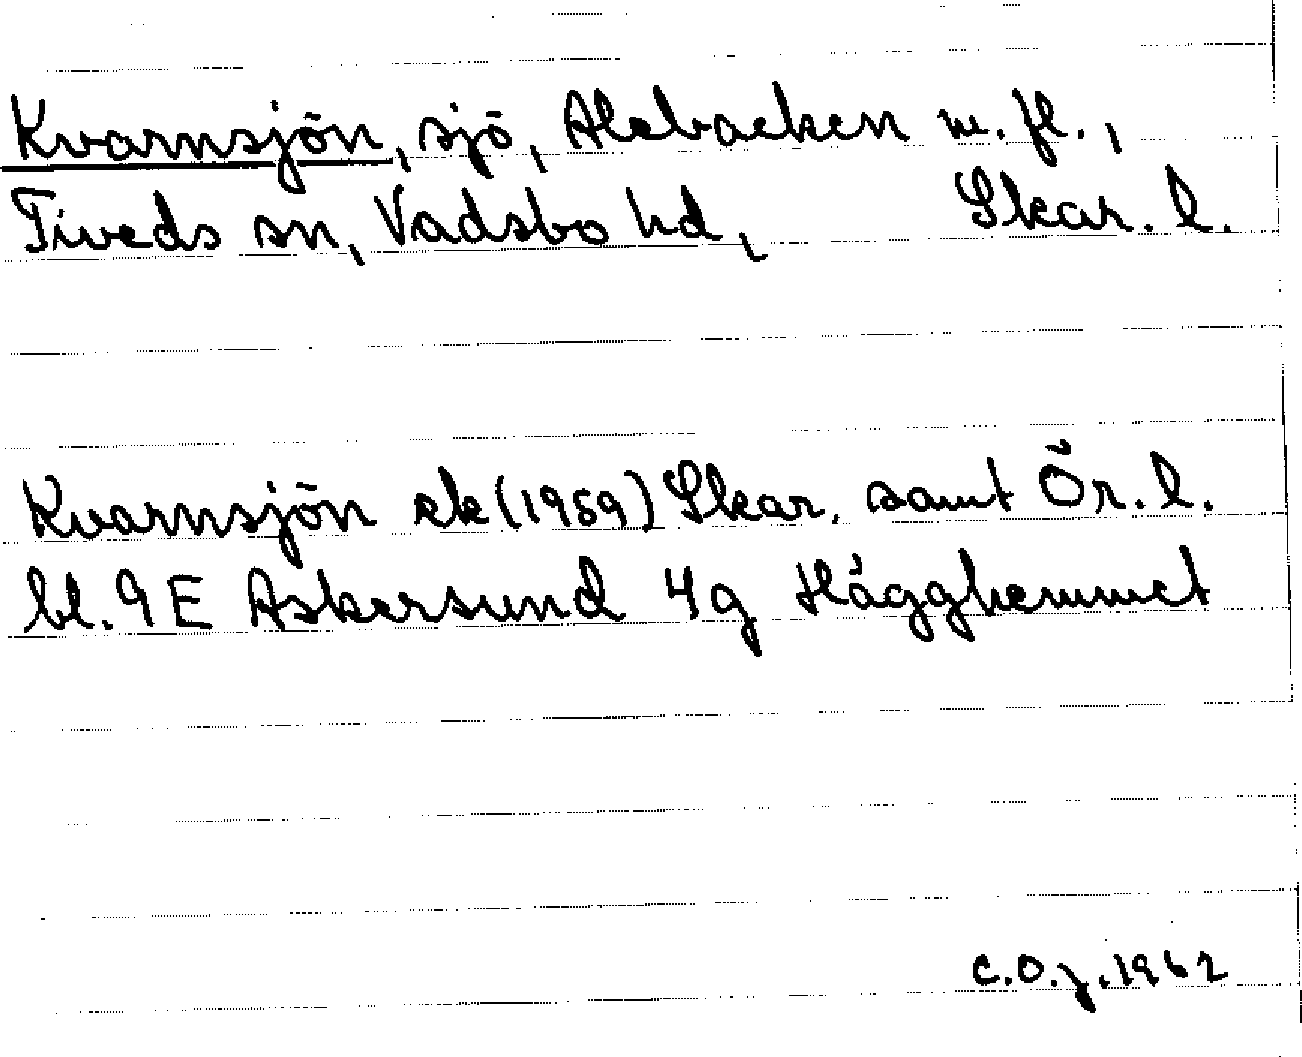 Kvarnsjön, sjö, Alebacken m. fl.,
Tiveds sn, Vadsbo hd, Skar. l.
Kvarnsjön ek (1959) Skar. samt Ör. l.
bl. 9E Askersund 4g Hägghemmet
C.O.J. 1962